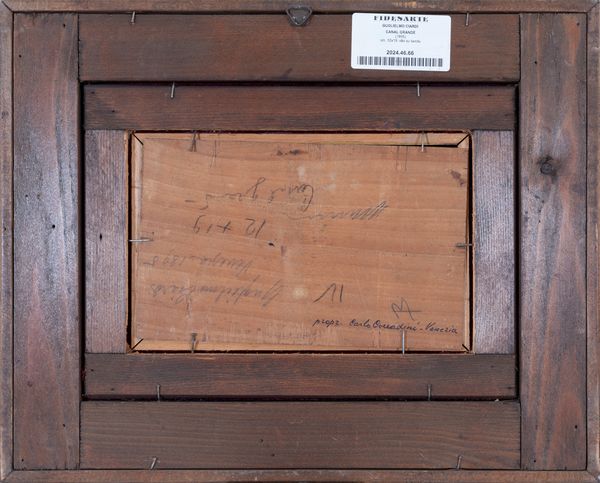 FIDESARTE
GUGLIELMO CIARDI
CANAL GRANDE
(1895)
2024.46.66
Canal grande
12 x 19
Venezia 1895
Guglielmo Ciardi
11
propr. Carlo Corradini - Venezia